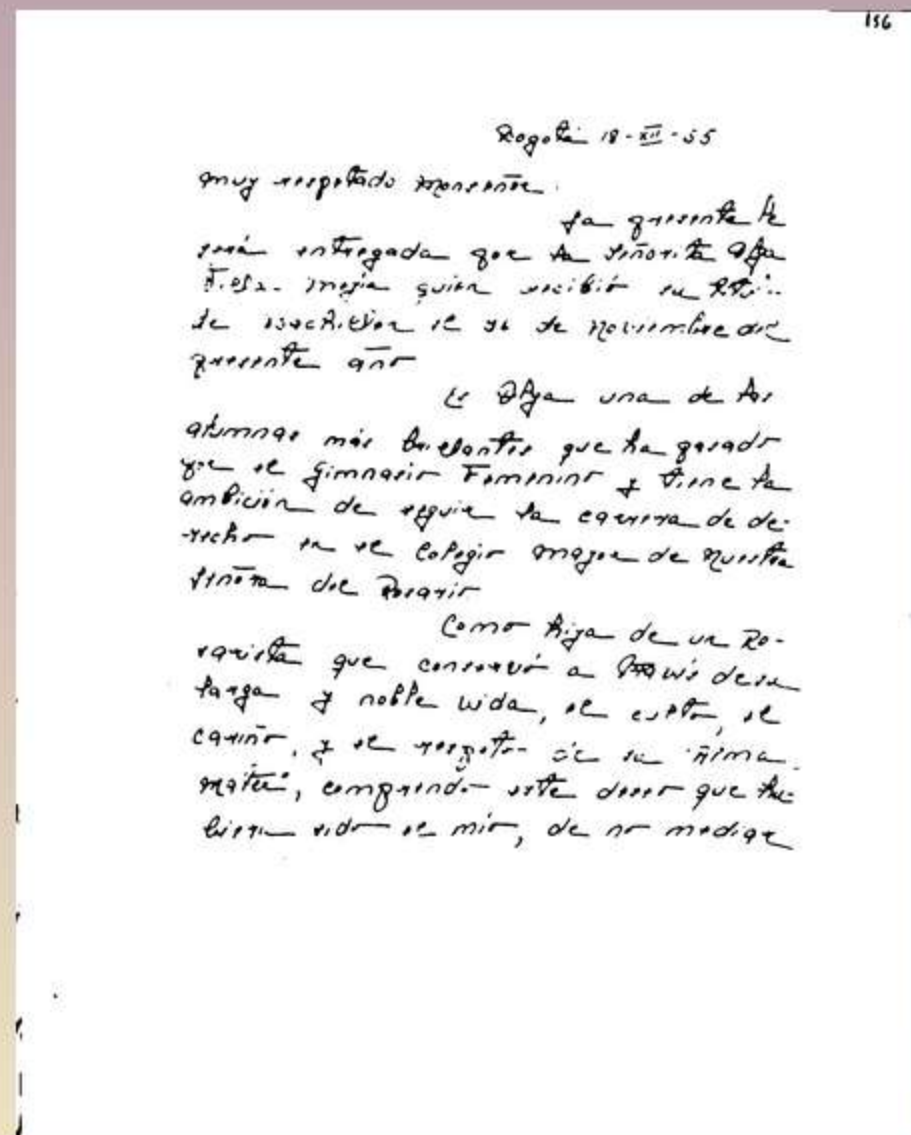 156
Bogotá 18-XII-55
Muy respetado Monseñor.
La presente le
será entregada por la señorita Olga
Mejía quien recibió su
de Bachiller el 26 de Noviembre del
presente año
Es Olga una de las
alumnas más brillantes que ha pasado
por el Gimnasio Femenino y tiene la
ambición de seguir la carrera de de-
-recho en el Colegio Mayor de Nuestra
Señora del Rosario
Como hija de un Ro-
sarista que conservó a través de su
larga y noble vida, el culto, el
cariño, y el respeto de su Alma
mater, comprendo este deseo que hu-
biera sido el mío, de no mediar